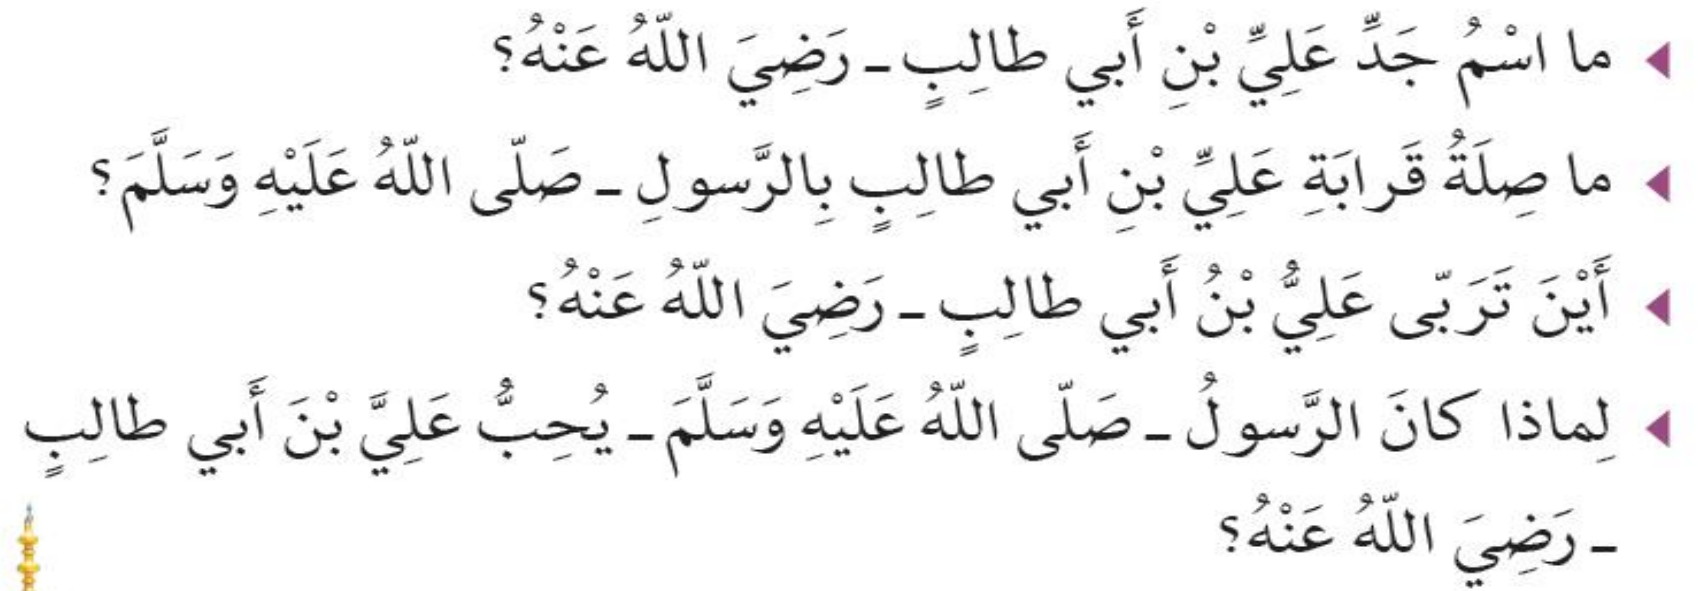 ما اسْمُ جَدِّ عَلِيِّ بْنِ أَبي طالِبٍ ـ رَضِيَ اللّٰهُ عَنْهُ؟
ما صِلَةُ قَرابَةِ عَلِيِّ بْنِ أَبي طالِبٍ بِالرَّسولِ ـ صَلّى اللّٰهُ عَلَيْهِ وَسَلَّمَ؟
أَيْنَ تَرَبّى عَلِيُّ بْنُ أَبي طالِبٍ ـ رَضِيَ اللّٰهُ عَنْهُ؟
لِماذا كانَ الرَّسولُ ـ صَلّى اللّٰهُ عَلَيْهِ وَسَلَّمَ ـ يُحِبُّ عَلِيَّ بْنَ أَبي طالِبٍ
ـ رَضِيَ اللّٰهُ عَنْهُ؟